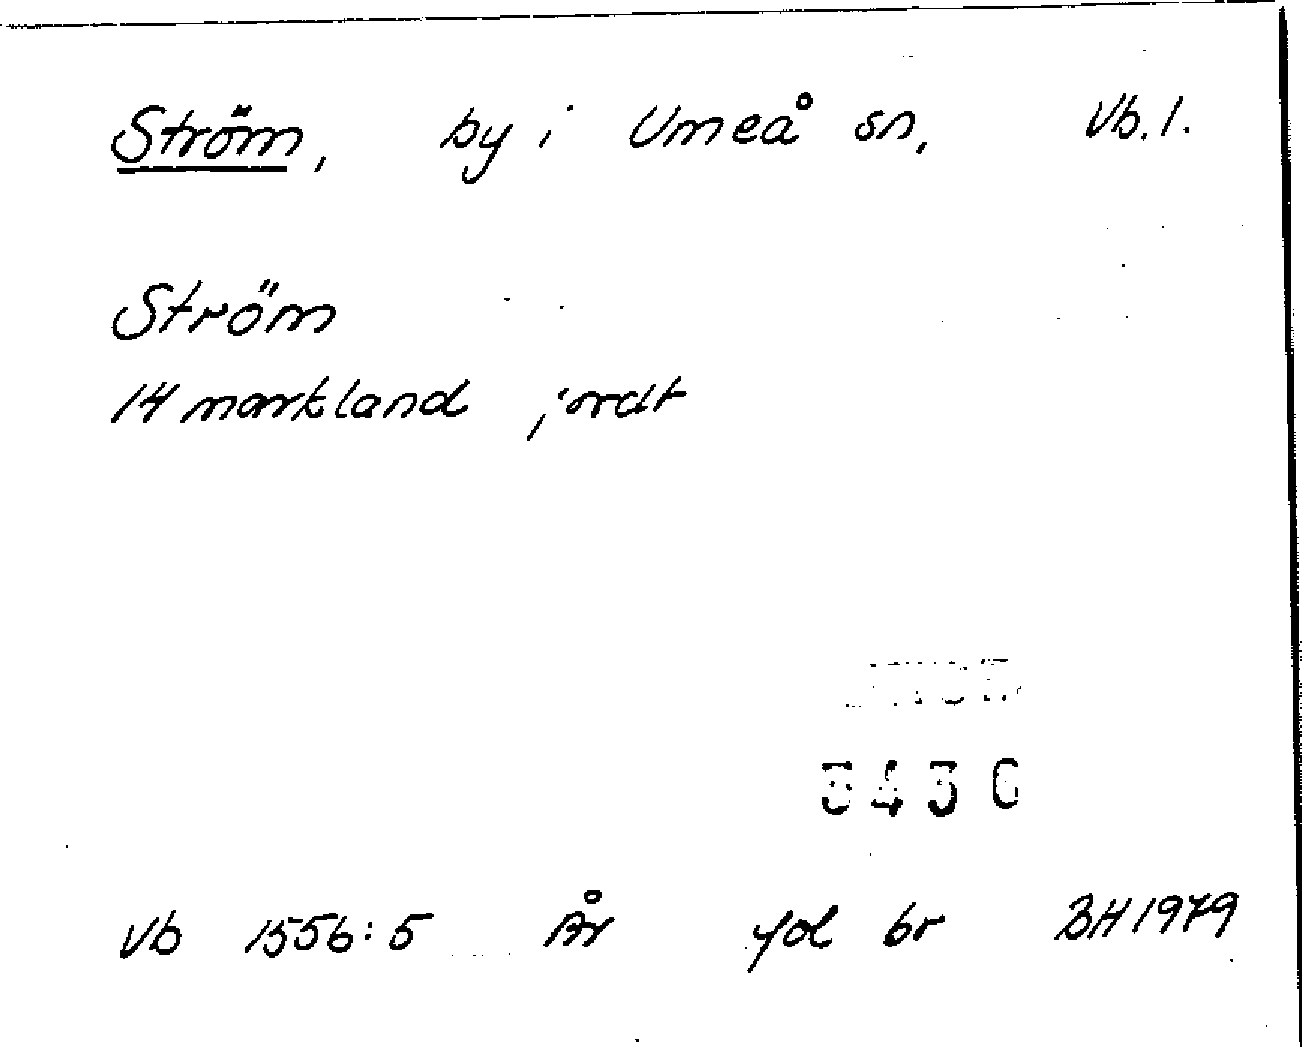 Ström, by i Umeå sn, Vb. l.
Ström
14 markland jordt
Vb 1556:5 År fol 6r BH 1979